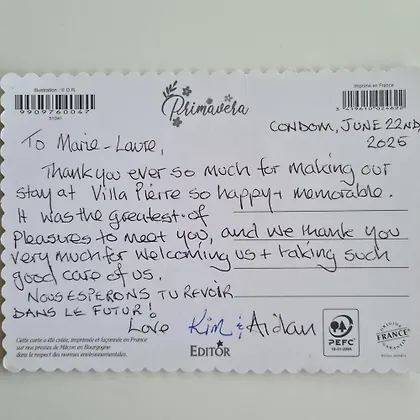 Illustration : © D.R.
9909760047
51041
Primavera
Imprimé en France
3419610024622
CONDOM, JUNE 22ND
2025
To Marie-Laure,
Thank you ever so much for making our
stay at Villa Pierre so happy + memorable.
It was the greatest of
pleasures to meet you, and we thank you
very much for welcoming us + taking such
good care of us.
NOUS ESPERONS TU REVOIR
DANS LE FUTUR !
Love Kim & Aidan
Cette carte a été créée, imprimée et façonnée en France
sur nos presses de Mâcon en Bourgogne
dans le respect des normes environnementales.
EDITOR
PEFC
ORIGINE
FRANCE
GARANTIE